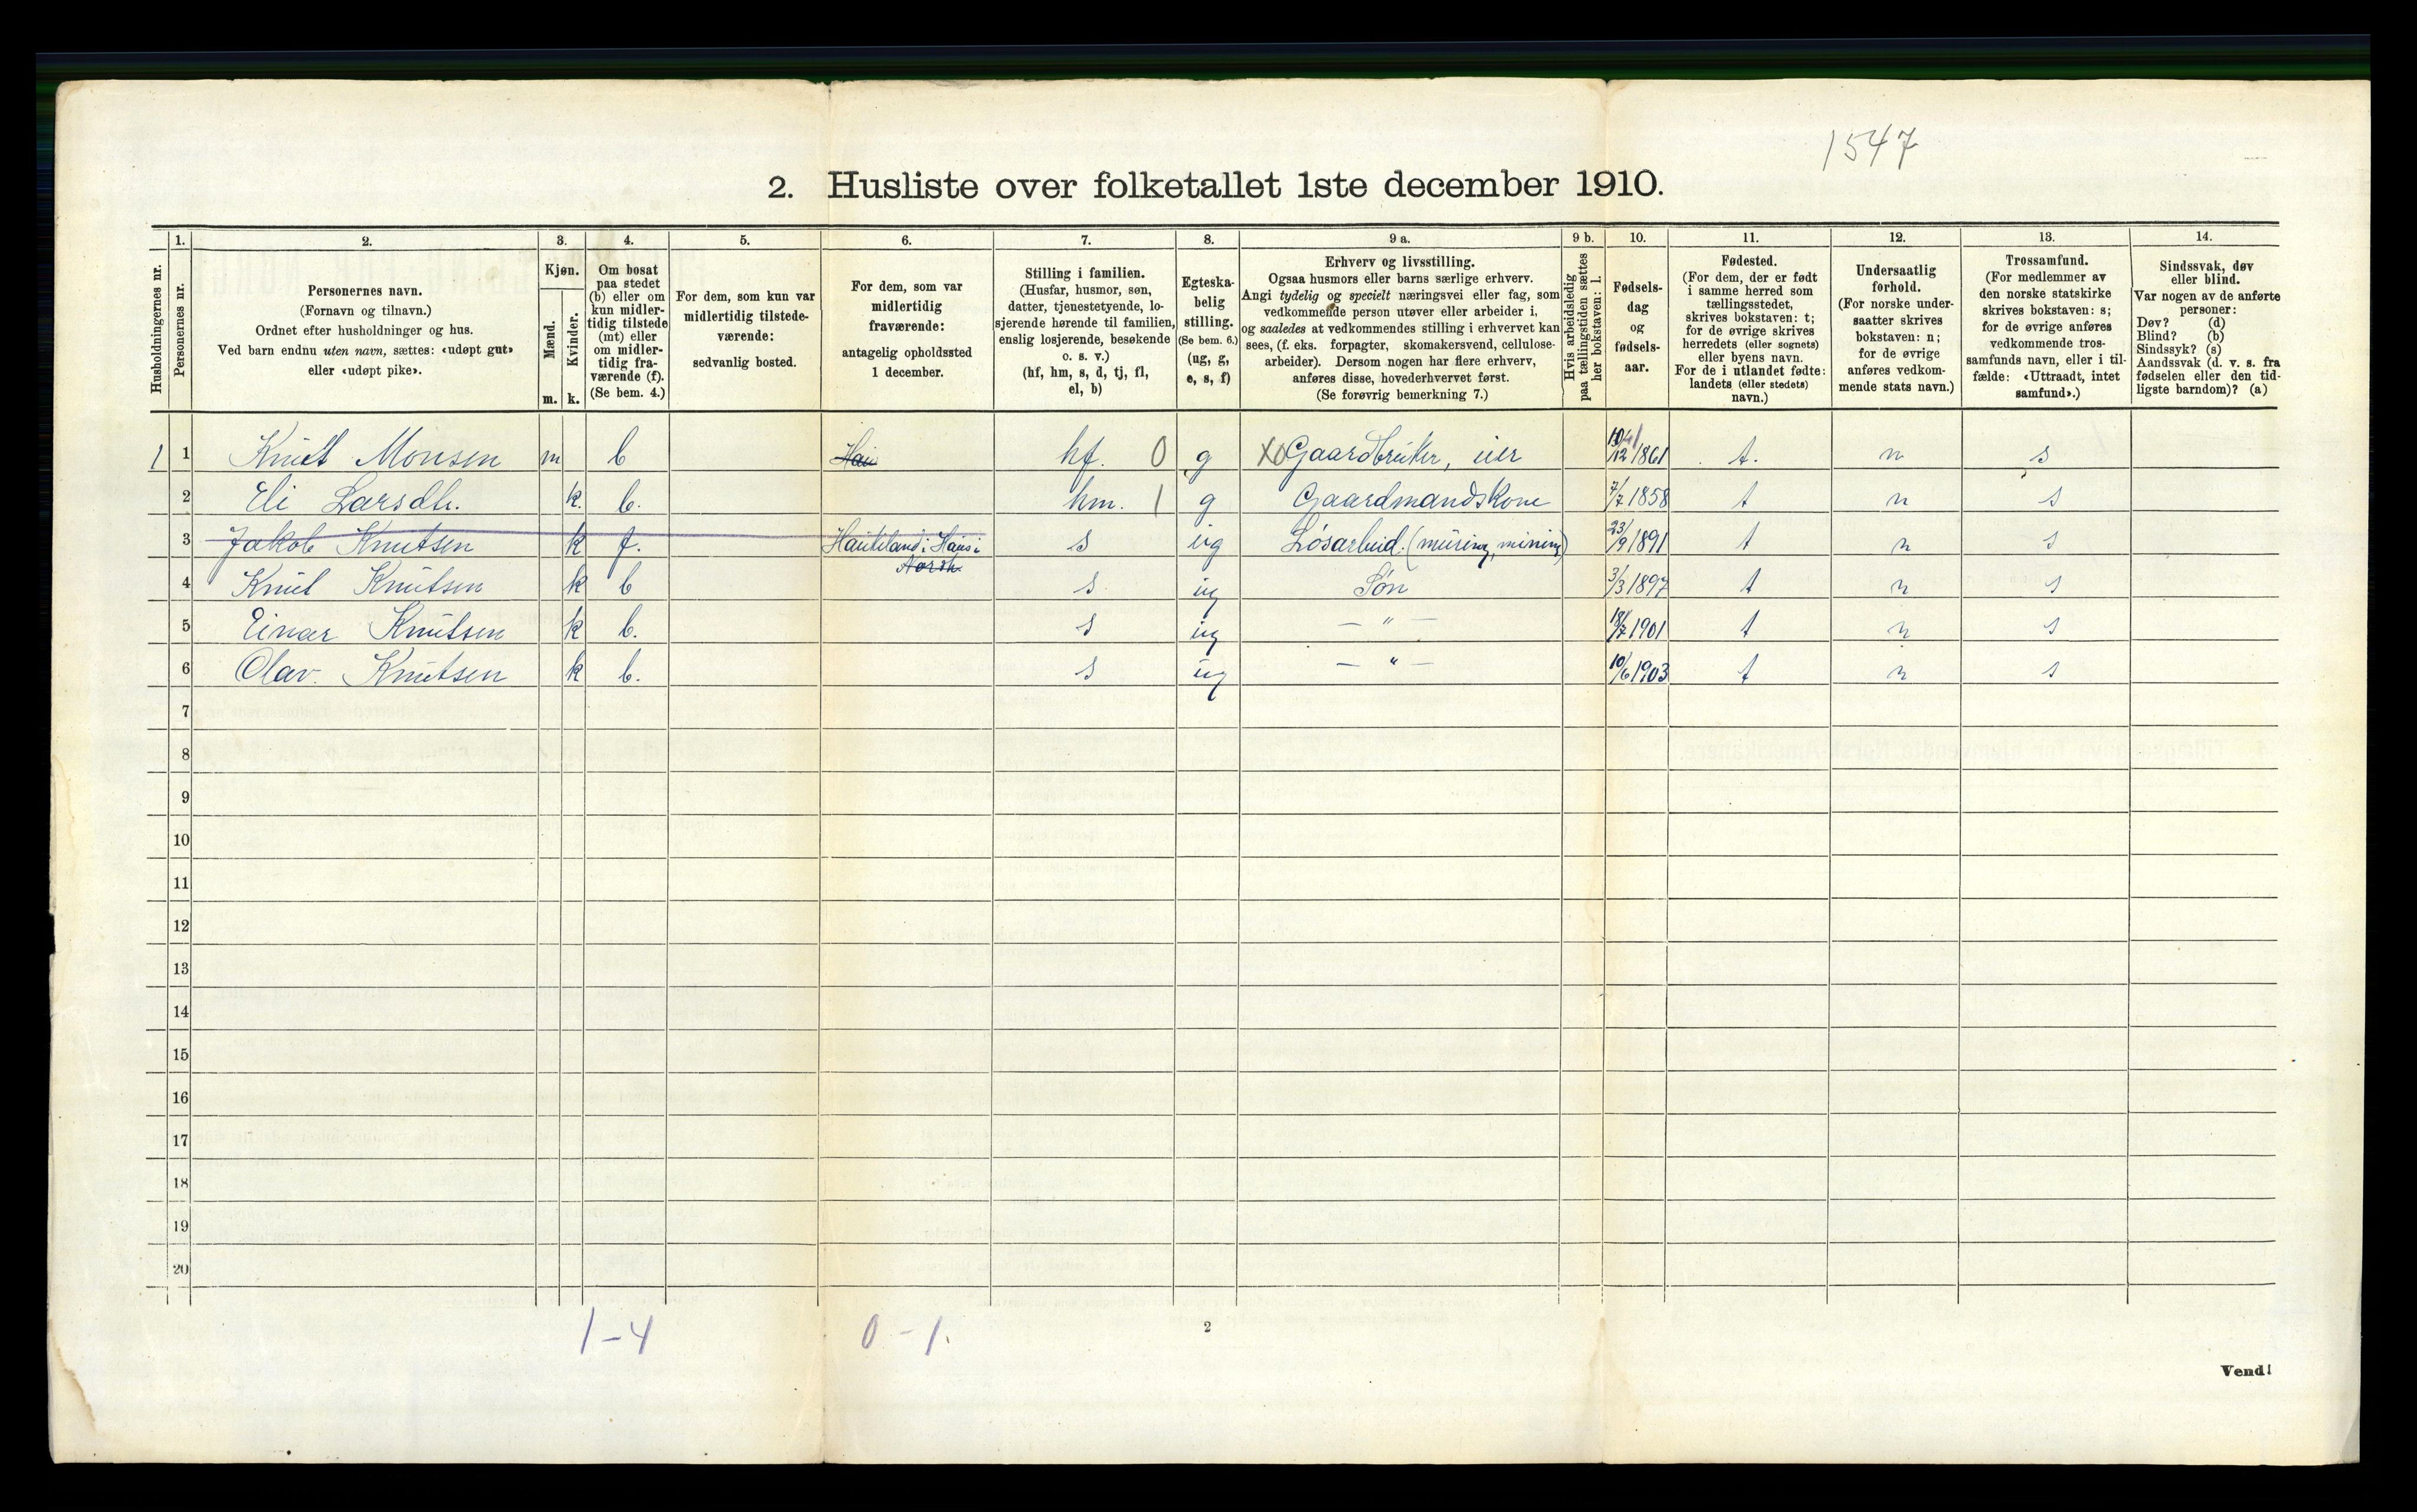 1547
2. Husliste over folketallet 1ste december 1910.
Husholdningernes nr.
1.
Personernes nr.
2.
Personernes navn.
(Fornavn og tilnavn.)
Ordnet efter husholdninger og hus.
Ved barn endnu uten navn, sættes: «udøpt gut»
eller «udøpt pike».
3.
Kjøn.
Mænd.
Kvinder.
m. k.
4.
Om bosat
paa stedet
(b) eller om
kun midler-
tidig tilstede
(mt) eller
om midler-
tidig fra-
værende (f).
(Se bem. 4.)
5.
For dem, som kun var
midlertidig tilstede-
værende:
sedvanlig bosted.
6.
For dem, som var
midlertidig
fraværende:
antagelig opholdssted
1 december.
7.
Stilling i familien.
(Husfar, husmor, søn,
datter, tjenestetyende, lo-
sjerende hørende til familien,
enslig losjerende, besøkende
o. s. v.)
(hf, hm, s, d, tj, fl,
el, b)
8.
Egteska-
belig
stilling.
(Se bem. 6.)
(ug, g,
e, s, f)
9 a.
Erhverv og livsstilling.
Ogsaa husmors eller barns særlige erhverv.
Angi tydelig og specielt næringsvei eller fag, som
vedkommende person utøver eller arbeider i,
og saaledes at vedkommendes stilling i erhvervet kan
sees, (f. eks. forpagter, skomakersvend, cellulose-
arbeider). Dersom nogen har flere erhverv,
anføres disse, hovederhvervet først.
(Se forøvrig bemerkning 7.)
9 b.
Hvis arbeidsledig
paa tællingstiden sættes
her bokstaven: l.
10.
Fødsels-
dag
og
fødsels-
aar.
11.
Fødested.
(For dem, der er født
i samme herred som
tællingsstedet,
skrives bokstaven: t;
for de øvrige skrives
herredets (eller sognets)
eller byens navn.
For de i utlandet fødte:
landets (eller stedets)
navn.)
12.
Undersaatlig
forhold.
(For norske under-
saatter skrives
bokstaven: n;
for de øvrige
anføres vedkom-
mende stats navn.)
13.
Trossamfund.
(For medlemmer av
den norske statskirke
skrives bokstaven: s;
for de øvrige anføres
vedkommende tros-
samfunds navn, eller i til-
fælde: «Uttraadt, intet
samfund».)
14.
Sindssvak, døv
eller blind.
Var nogen av de anførte
personer:
Døv? (d)
Blind? (b)
Sindssyk? (s)
Aandssvak (d. v. s. fra
fødselen eller den tid-
ligste barndom)? (a)
1 1 Knut Monsen m b Hau hf. 0 g X0 Gaardbruker, eier /12 1861 t. n s
2 Eli Larsdtr. k. b. hm. 1 g Gaardmandskone 7/7 1858 t n s
3 Jakob Knutsen k f. Haukeland i Haus i s ug Løsarbeid. (muring, mining) 23/9 1891 t n s
4 Knut Knutsen k b s ug Søn 3/3 1897 t n s
5 Einar Knutsen k b. s ug — " — 18/7 1901 t n s
6 Olav Knutsen k b. s ug — " — 10/6 1903 t n s
7
8
9
10
11
12
13
14
15
16
17
18
19
20
1 - 4 0 - 1.
2
Vend!